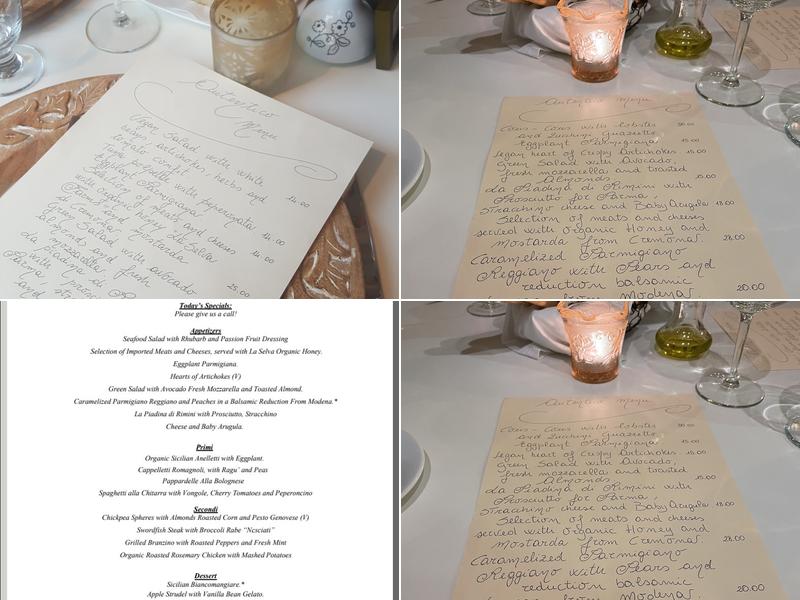 Autentico
Menu
Vegan Salad with white
beans, artichokes, herbs and
tomato confit 14.00
Eggplant Parmigiana 14.00
Selection of meats and cheeses
with organic honey La Selva
Green Salad with avocado
mozzarella, 25.00
Autentico Menu
Cous-Cous with lobster 30.00
and Zucchini Guazzetto
Eggplant Parmigiana 15.00
Vegan heart of Crispy Artichokes 15.00
Green Salad with Avocado,
fresh mozzarella and toasted
Almonds 15.00
La Piadina di Rimini with
Prosciutto for Parma,
Stracchino cheese and Baby Arugula 18.00
Selection of meats and cheeses
served with Organic Honey and
Mostarda from Cremona. 28.00
Caramelized Parmigiano
Reggiano with Pears and
reduction balsamic
Modena. 20.00
Today's Specials:
Please give us a call!
Appetizers
Seafood Salad with Rhubarb and Passion Fruit Dressing
Selection of Imported Meats and Cheeses, served with La Selva Organic Honey.
Eggplant Parmigiana
Hearts of Artichokes (V)
Green Salad with Avocado Fresh Mozzarella and Toasted Almond.
Caramelized Parmigiano Reggiano and Peaches in a Balsamic Reduction From Modena.*
La Piadina di Rimini with Prosciutto, Stracchino
Cheese and Baby Arugula.
Primi
Organic Sicilian Anelletti with Eggplant.
Cappelletti Romagnoli, with Ragu' and Peas
Pappardelle Alla Bolognese
Spaghetti alla Chitarra with Vongole, Cherry Tomatoes and Peperoncino
Secondi
Chickpea Spheres with Almonds Roasted Corn and Pesto Genovese (V)
Swordfish Steak with Broccoli Rabe "Ncuciati"
Grilled Branzino with Roasted Peppers and Fresh Mint
Organic Roasted Rosemary Chicken with Mashed Potatoes
Dessert
Sicilian Biancomangiare.*
Apple Strudel with Vanilla Bean Gelato.
Autentico Menu
Cous-Cous with lobster 30.00
and Zucchini Guazzetto
Eggplant Parmigiana 15.00
Vegan heart of Crispy Artichokes 15.00
Green Salad with Avocado,
fresh mozzarella and toasted
Almonds 15.00
La Piadina di Rimini with
Prosciutto for Parma,
Stracchino cheese and Baby Arugula 18.00
Selection of meats and cheeses
served with Organic Honey and
Mostarda from Cremona. 28.00
Caramelized Parmigiano
Reggiano with Pears and
reduction balsamic
Modena. 20.00